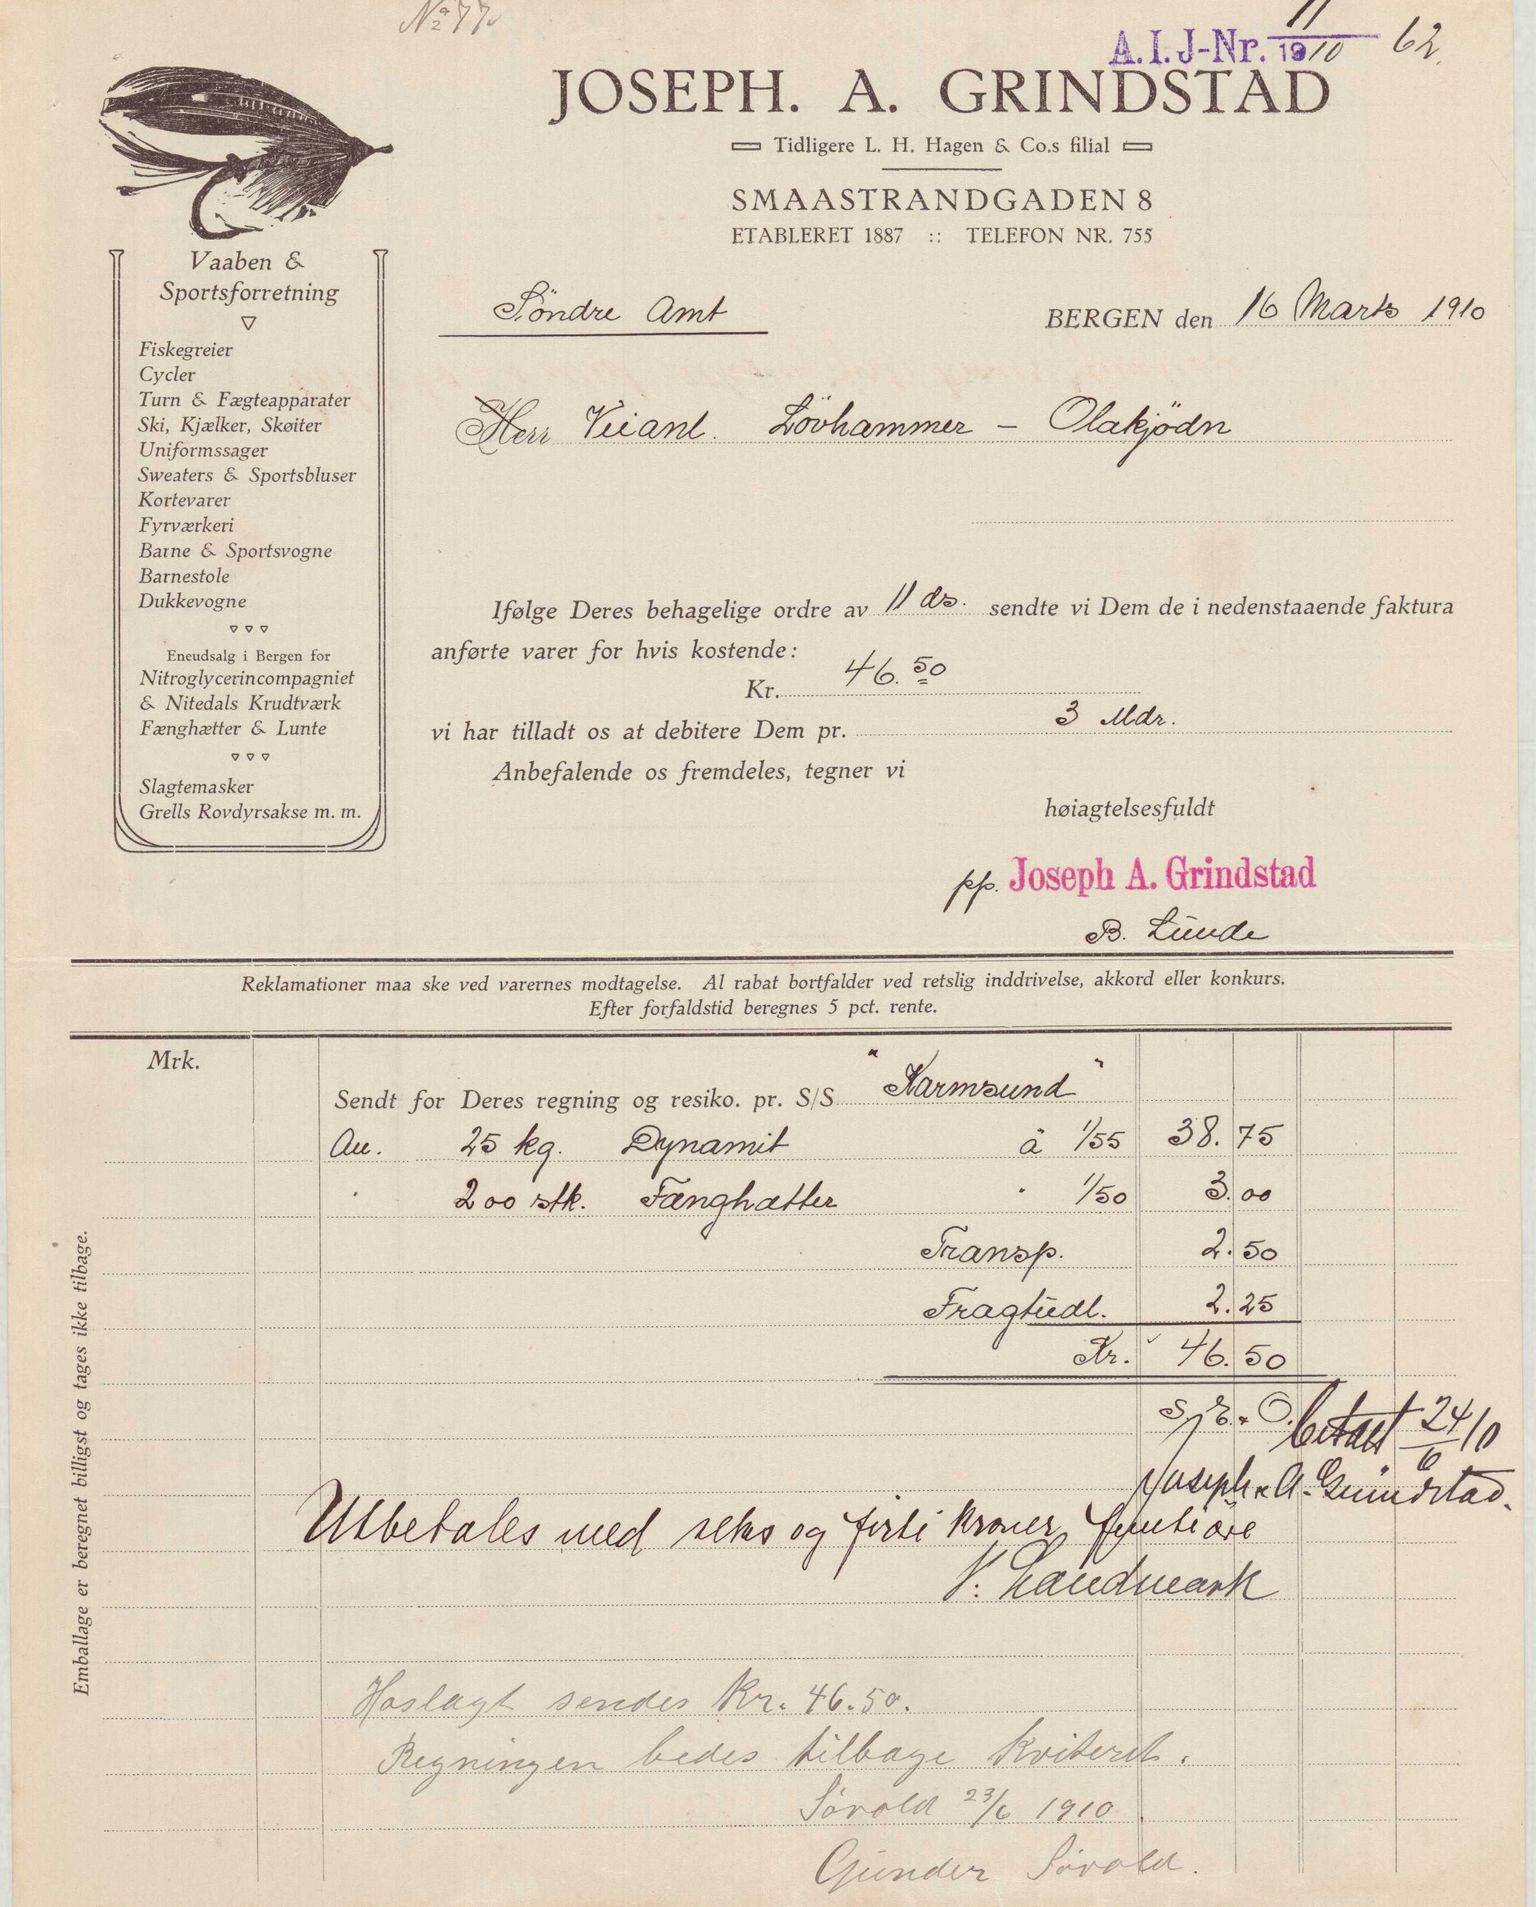 No 77
A.I.J-Nr. 11/1910 62.
JOSEPH. A. GRINDSTAD
Tidligere L. H. Hagen & Co.s filial
SMAASTRANDGADEN 8
ETABLERET 1887 :: TELEFON NR. 755
Vaaben &
Sportsforretning
Fiskegreier
Cycler
Turn & Fægteapparater
Ski, Kjælker, Skøiter
Uniformssager
Sweaters & Sportsbluser
Kortevarer
Fyrværkeri
Barne & Sportsvogne
Barnestole
Dukkevogne
Eneudsalg i Bergen for
Nitroglycerincompagniet
& Nitedals Krudtværk
Fænghætter & Lunte
Slagtemasker
Grells Rovdyrsakse m. m.
Söndre Amt
BERGEN den 16 Marts 1910
Herr Veianl. Lövhammer - Olakjödn
Ifølge Deres behagelige ordre av 11 ds. sendte vi Dem de i nedenstaaende faktura
anførte varer for hvis kostende:
Kr. 46.50
vi har tilladt os at debitere Dem pr. 3 Mdr.
Anbefalende os fremdeles, tegner vi
høiagtelsesfuldt
pp. Joseph A. Grindstad
B. Lunde
Reklamationer maa ske ved varernes modtagelse. Al rabat bortfalder ved retslig inddrivelse, akkord eller konkurs.
Efter forfaldstid beregnes 5 pct. rente.
Mrk.
Sendt for Deres regning og resiko. pr. S/S "Karmsund"
An. 25 kg. Dynamit à 1/55 38.75
" 200 stk. Fænghætter " 1/50 3.00
Transp. 2.50
Fragtudl. 2.25
Kr. 46.50
S. E. & O.
betalt 24/6 10
Joseph A. Grindstad.
Utbetales med seks og firti kroner, femti øre
V. Landmark
Hoslagt sendes Kr. 46.50.
Regningen bedes tilbage kviteret.
Sörold 23/6 1910
Gunder Sörold.
Emballage er beregnet billigst og tages ikke tilbage.